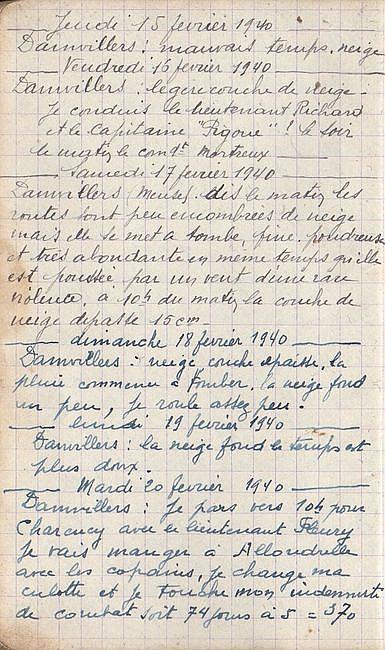 Jeudi 15 fevrier 1940
Damvillers : mauvais temps, neige
Vendredi 16 fevrier 1940
Damvillers : légère couche de neige :
Je conduis le lieutenant Richard
et le capitaine "Figorie" ! le soir
le matin le comdt Mortreux
Samedi 17 fevrier 1940
Damvillers (Meuse) dès le matin les
routes sont peu encombrées de neige
mais elle se met a tombe, fine, poudreuse
et très abondante en même temps qu'elle
est poussée par un vent d'une rare
violence, a 10h du matin la couche de
neige depasse 15 cm
dimanche 18 fevrier 1940
Damvillers : neige couche epaisse, la
pluie commence a tomber, la neige fond
un peu, je roule assez peu.
lundi 19 fevrier 1940
Damvillers : la neige fond le temps est
plus doux.
Mardi 20 fevrier 1940
Damvillers : Je pars vers 10h pour
Charency avec le lieutenant Fleury
Je vais manger à Allondrelle
avec les copains, je change ma
culotte et je touche mon indemnité
de combat soit 74 jours à 5 = 370